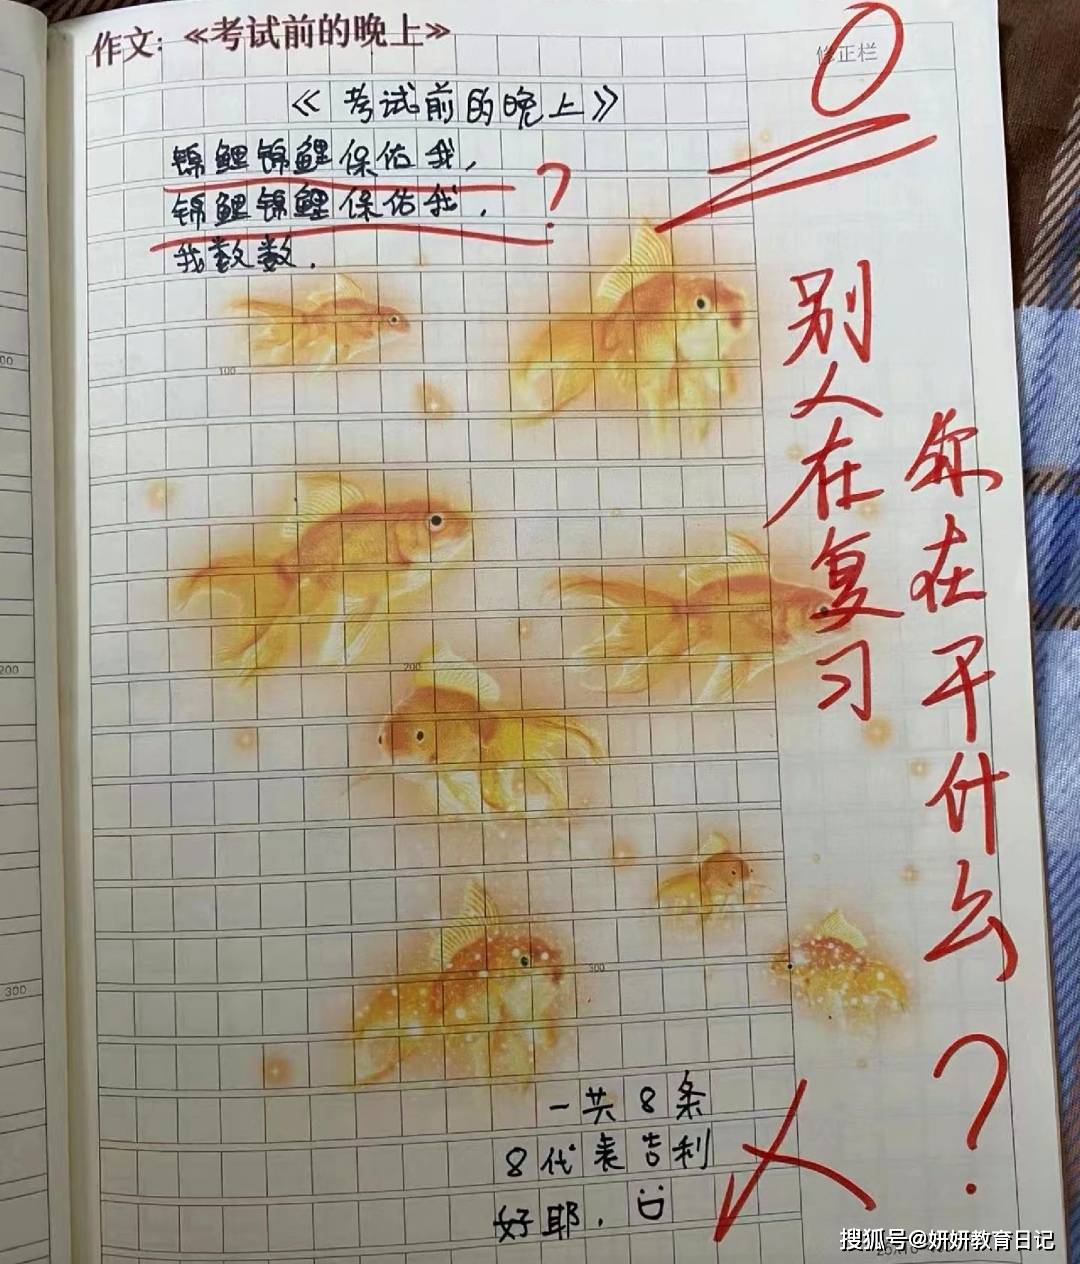 作文:《考试前的晚上》
修正栏
0
《考试前的晚上》
锦鲤锦鲤保佑我,
锦鲤锦鲤保佑我,
?
我数数.
100
200
300
一共8条
8代表吉利
好耶.
别人在复习
你在干什么?
00
200
300
搜狐号@妍妍教育日记